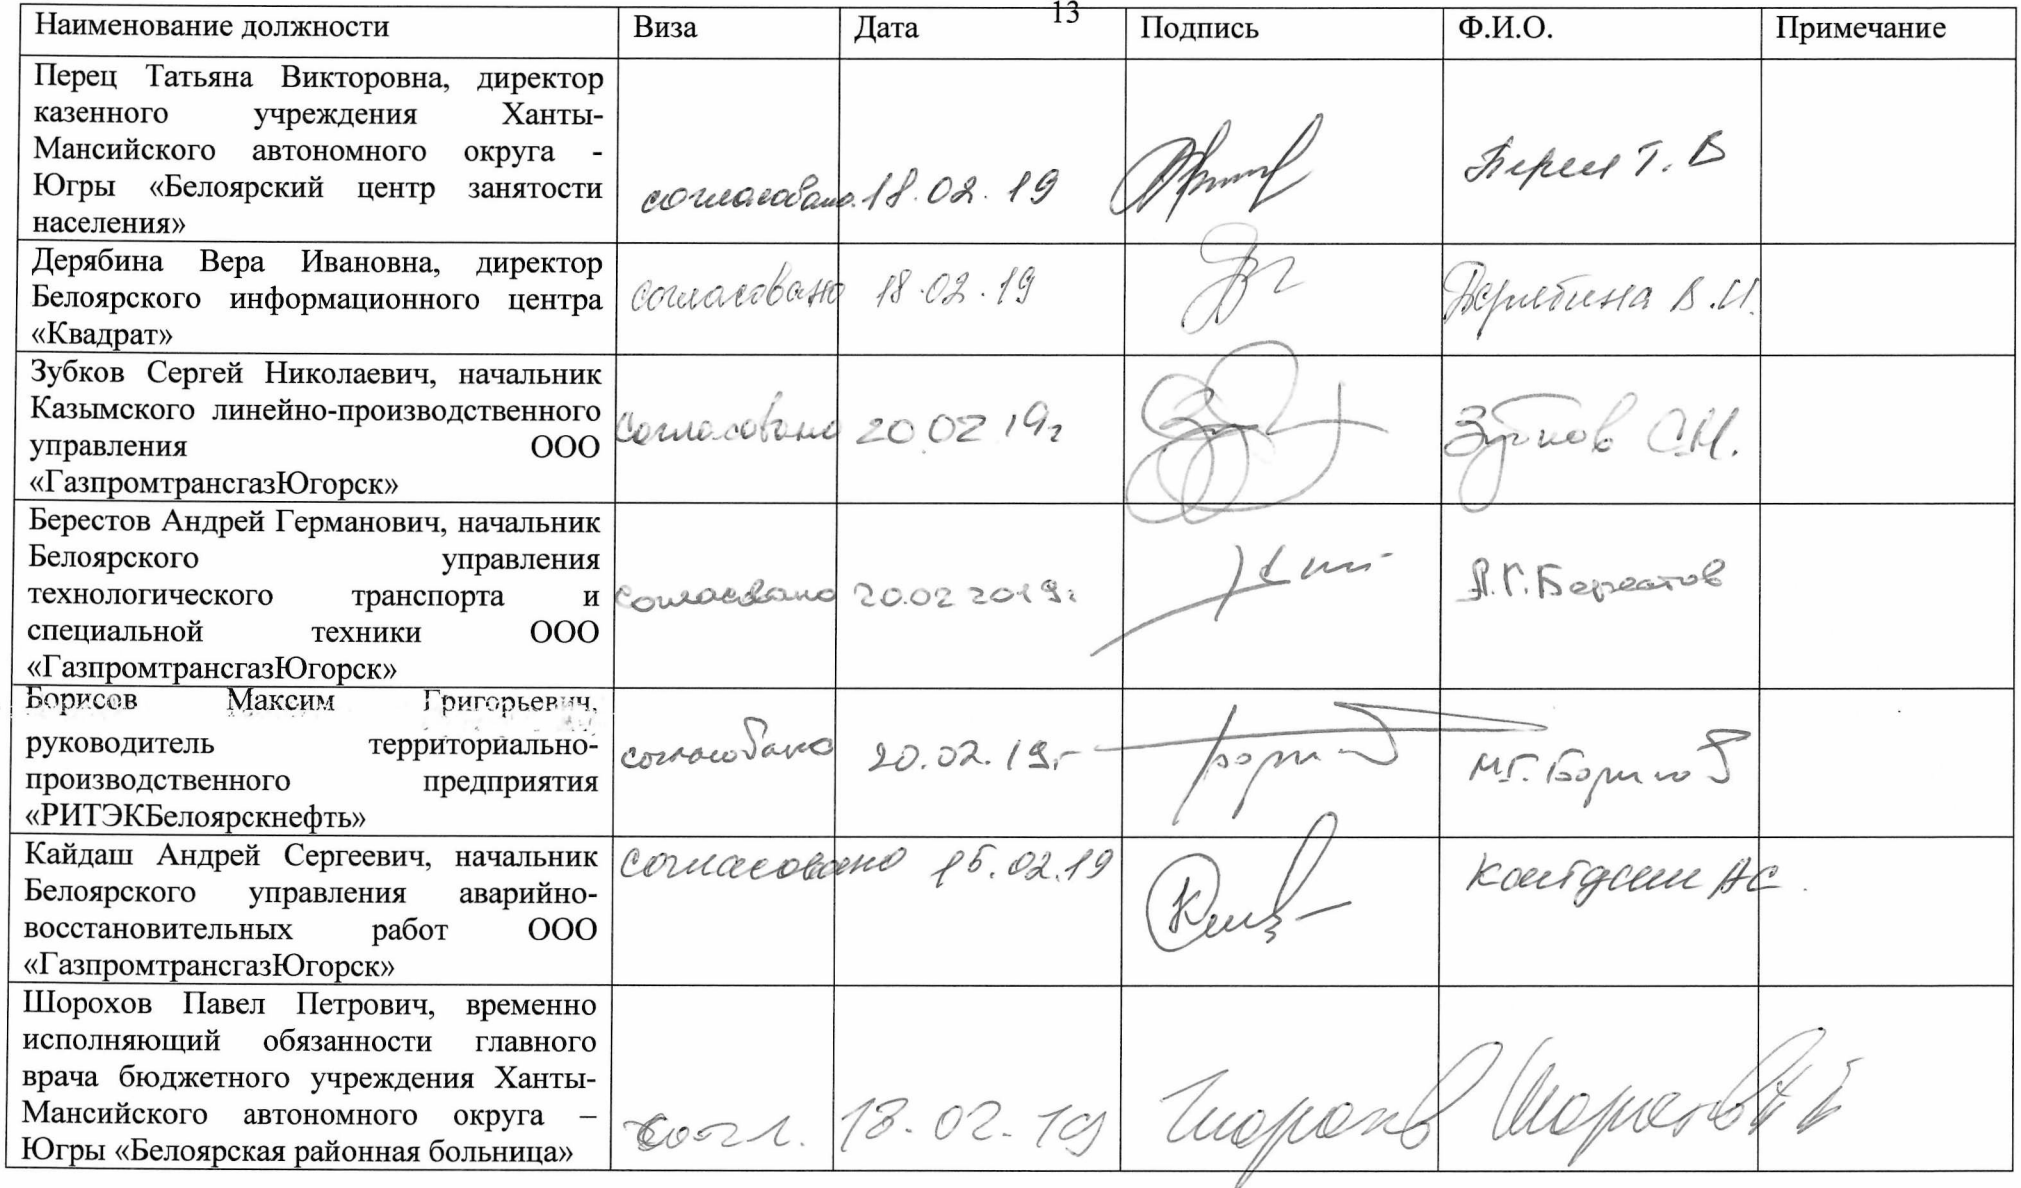 13
Наименование должности Виза Дата Подпись Ф.И.О. Примечание
Перец Татьяна Викторовна, директор
казенного учреждения Ханты-
Мансийского автономного округа -
Югры «Белоярский центр занятости
населения»
согласовано 18.02.19 Перец Т. В
Дерябина Вера Ивановна, директор
Белоярского информационного центра
«Квадрат»
согласовано 18.02.19 Дерябина В.И.
Зубков Сергей Николаевич, начальник
Казымского линейно-производственного
управления ООО
«ГазпромтрансгазЮгорск»
Согласовано 20.02.19г Зубков С.Н.
Берестов Андрей Германович, начальник
Белоярского управления
технологического транспорта и
специальной техники ООО
«ГазпромтрансгазЮгорск»
Согласовано 20.02.2019г. А.Г.Берестов
Борисов Максим Григорьевич,
руководитель территориально-
производственного предприятия
«РИТЭКБелоярскнефть»
согласовано 20.02.19г М.Г.Борисов
Кайдаш Андрей Сергеевич, начальник
Белоярского управления аварийно-
восстановительных работ ООО
«ГазпромтрансгазЮгорск»
Согласовано 15.02.19 Кайдаш АС.
Шорохов Павел Петрович, временно
исполняющий обязанности главного
врача бюджетного учреждения Ханты-
Мансийского автономного округа –
Югры «Белоярская районная больница»
согл. 18.02.19 Шорохов Шорохов П П